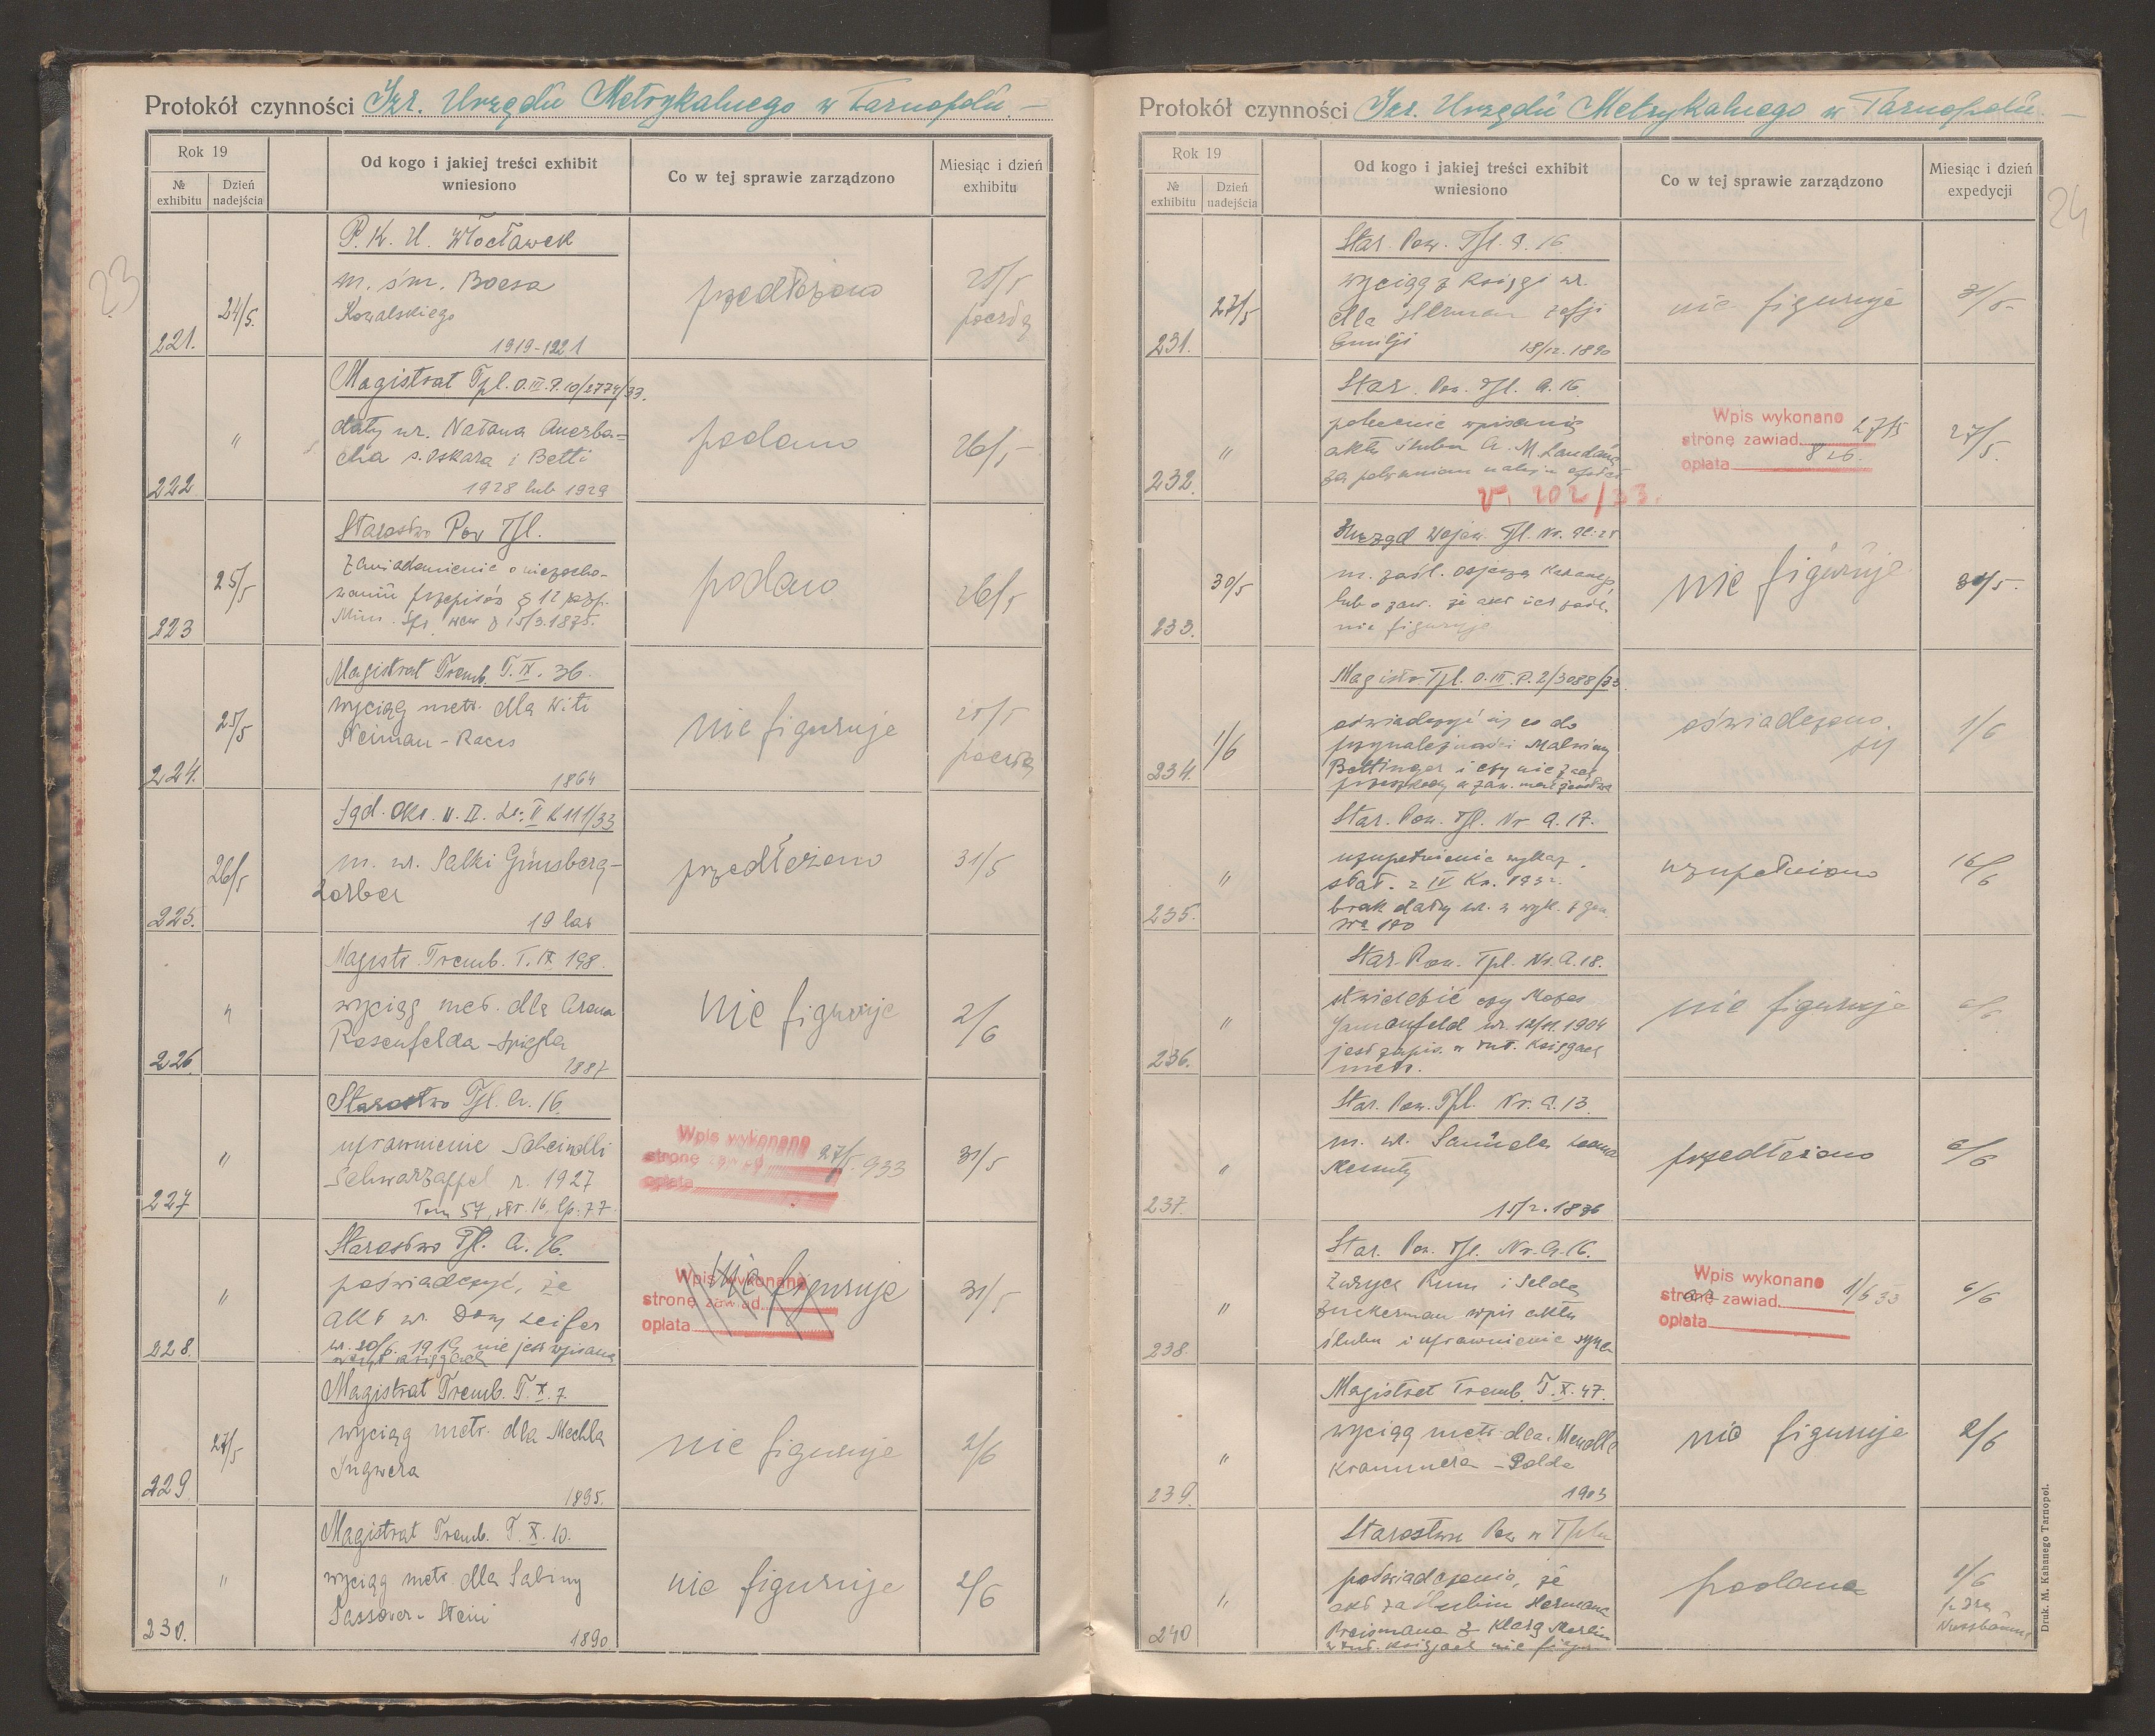 23
Protokół czynności Izr. Urzędu Metrykalnego w Tarnopolu.
Rok 19
№ exhibitu
Dzień nadejścia
Od kogo i jakiej treści exhibit
wniesiono
Co w tej sprawie zarządzono
Miesiąc i dzień
exhibitu
P. K. U. Włocławek
m. śm. Boesa
Kowalskiego
1919-1921
221.
24/5.
przedłożono
pocztą
Magistrat Tpl. O.III.P.10/2774/33.
daty ur. Natana Auerba=
cha s. Oskara i Betti
1928 lub 1929
222
"
podano
26/5
Starostwo Pow Tpl.
Zawiadomienie o niezacho-
waniu przepisów § 12 rozp.
Min. Spr. wew z 15/3.1875.
223
25/5
podano
26/5
Magistrat Tremb. T.IX.36.
wyciąg metr. dla Witi
Neiman - Racis
1864
224.
25/5
nie figuruje
25/5
pocztą
Sąd. Okr. V K 111/33
m. ur. Salki Günsberg-
Zorber
19 lat
225.
26/5
przedłożono
31/5
Magistr. Tremb. T.IX.198.
wyciąg met. dla Arona
Rosenfelda - Spigla
1887
226.
"
nie figuruje
2/6
Starostwo Tpl. A.16.
uprawnienie Scheindli
Schwarzapfel r. 1927
Tom 57, str. 16, lp. 77
227
"
Wpis wykonano
stronę zawiad. 27/5 933
opłata
31/5
Starostwo Tpl. A.16.
poświadczyć, że
akt ur. Dory Leifer
ur. 20/6. 1919 nie jest wpisana
228.
"
nie figuruje
Wpis wykonano
stronę zawiad.
opłata
31/5
Magistrat Tremb. T.X.7.
wyciąg metr. dla Mechla
Ingwera
1895.
229
27/5
nie figuruje
2/6
Magistrat Tremb. T.X.10.
wyciąg metr. dla Sabiny
Sassower - Stein
1890
230.
"
nie figuruje
2/6
24
Protokół czynności Izr. Urzędu Metrykalnego w Tarnopolu.
Rok 19
№ exhibitu
Dzień nadejścia
Od kogo i jakiej treści exhibit
wniesiono
Co w tej sprawie zarządzono
Miesiąc i dzień
expedycji
Star. Pow. Tpl. A.16.
wyciąg z księgi ur.
dla Herman Zofji
Emilji 18/12.1890
231.
27/5
nie figuruje
31/5
Star. Pow. Tpl. A.16.
polecenie wpisania
aktu ślubu A. M. Landaua
v. 202/33.
232.
"
Wpis wykonano 27/5
stronę zawiad. 826.
opłata
27/5.
Urząd Wojew. Tpl.
m. zaśl. Osjasza Katanego
lub o zaw. że akt ich zaśl.
nie figuruje
233.
30/5
nie figuruje
31/5
Magistr. Tpl. O.III.P.2/3088/33.
oświadczyć się co do
przynależności Malwiny
Bettinger i czy nie zach.
przeszkody w zaw. małżeństwa
234.
1/6
oświadczono
się
1/6
Star. Pow. Tpl. Nr A.17.
uzupełnienie wykaz.
stat. z IV Kw. 1932.
brak daty ur. w wyk. zgon.
№ 180
235.
"
uzupełniono
16/6
Star. Pow. Tpl. Nr. A.18.
stwierdzić czy Mojżes
ur. 12/11.1904
jest zapis. w tut. księgach
metr.
236.
"
nie figuruje
6/6
Star. Pow. Tpl. Nr. A.13.
m. ur. Samuela Leona
15/2.1896
237.
"
przedłożono
6/6
Star. Pow. Tpl. Nr. A.16.
Zuckerman wpis aktu
ślubu i uprawnienie syna
238.
"
Wpis wykonano
stronę zawiad. 1/6 33
opłata
6/6
Magistrat Tremb. T.X.47.
wyciąg metr. dla Mendla
Krammera - Polda
1903
239.
"
nie figuruje
2/6
Starostwo Pow w Tplu
poświadczenie, że
akt zaślubin Hermana
Preismana z Klarą Merlin
w tut. księgach nie figur.
240
"
podano
1/6
Nussbauma
Druk. M. Kahanego Tarnopol.